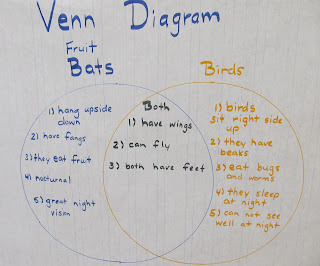 Venn Diagram
Fruit
Bats
Birds
1) hang upside
down
2) have fangs
3) they eat fruit
4) nocturnal
5) great night
vision
Both
1) have wings
2) can fly
3) both have feet
1) birds
sit right side
up
2) they have
beaks
3) eat bugs
and worms
4) they sleep
at night
5) can not see
well at night